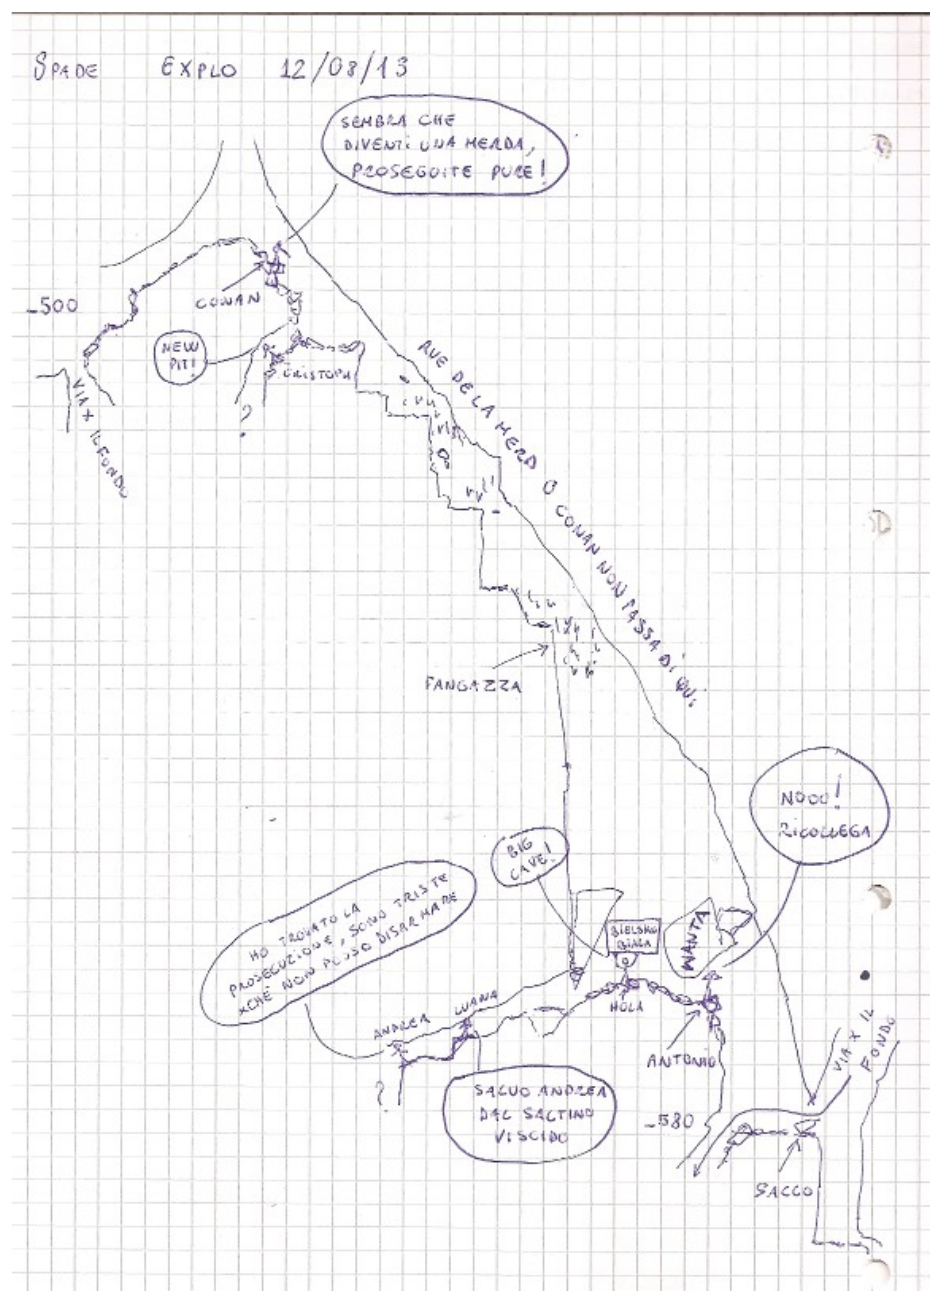 SPADE EXPLO 12/08/13
SEMBRA CHE
DIVENTI UNA MERDA,
PROSEGUITE PURE!
CONAN
-500
NEW
PIT!
CRISTOPH
?
VIA X IL FONDO
RUE DE LA MERD O CONAN NON PASSA DI QUI
FANGAZZA
NOOO!
RICOLLEGA
BIG
CAVE!
HO TROVATO LA
PROSECUZIONE, SONO TRISTE
XCHÉ NON POSSO DISARMARE
BIELSKO
BIALA
WANTA
HOLA
ANDREA
LUANA
ANTONIO
VIA X IL
FONDO
?
SALVO ANDREA
DAL SALTINO
VISCIDO
-580
SACCO